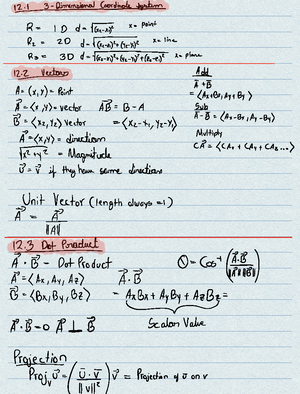 12.1 3-Dimensional Coordinate System
R = 1D d=√(x₂-x₁)² x = point
R₂ = 2D d=√(x₂-x₁)²+(y₂-y₁)² x = line
R₃ = 3D d=√(x₂-x₁)²+(y₂-y₁)²+(z₂-z₁)² x = plane
12.2 Vectors
A = (x,y) = Point
A⃗ = <x,y> = vector A⃗B = B - A
B⃗ = <x₂,y₂> vector = <x₂-x₁, y₂-y₁>
A⃗ = <x,y> = direction
√x²+y² = Magnitude
u⃗ = v⃗ if they have same direction
Add
A⃗ + B⃗
= <Ax₁+Ay₁+>
Sub
A⃗ - B⃗ =
Multiply
CA⃗ =
Unit Vector (length always = 1)
A⃗ = A⃗ / ||A||
12.3 Dot Product
A⃗ · B⃗ - Dot Product
A⃗ = <Ax, Ay, Az>
B⃗ = <Bx, By, Bz>
A⃗ · B⃗ = 0 A⃗ ⊥ B⃗
θ = Cos⁻¹ (A⃗·B⃗ / ||A⃗|| ||B⃗||)
A⃗ · B⃗
= AxBx + AyBy + AzBz =
Scalar Value
Projection
Projᵥu⃗ = (u⃗·v⃗ / ||v||²) v⃗ = Projection of u on v